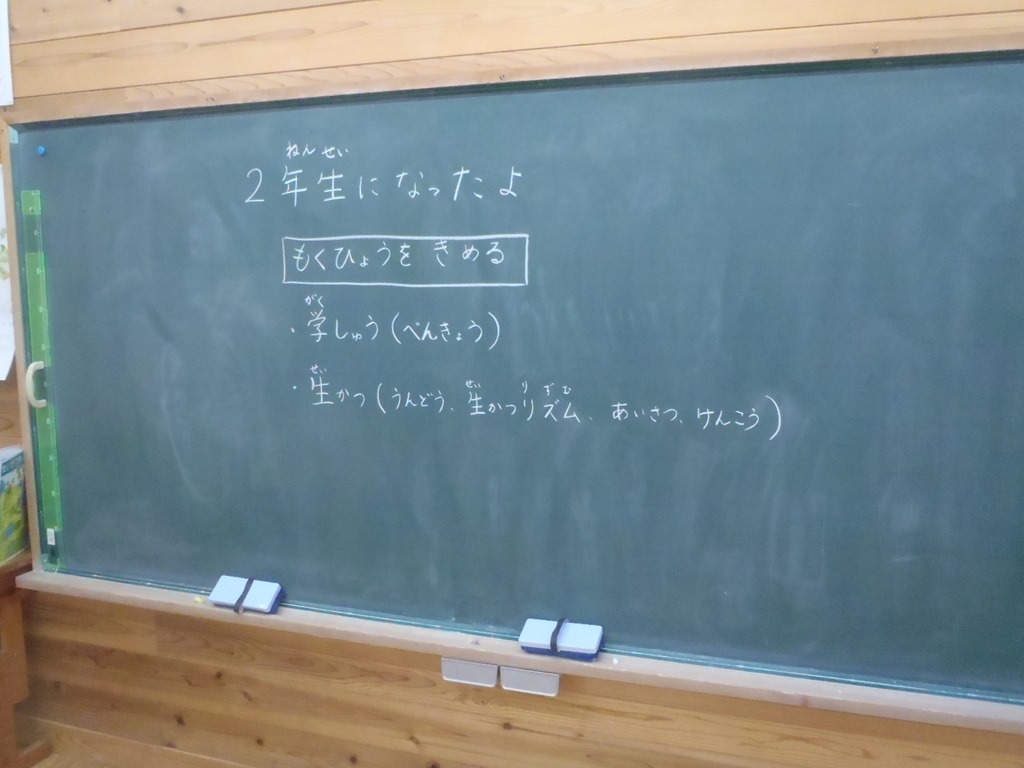 ねん せい
2年生になったよ
もくひょうを きめる
がく
・学しゅう(べんきょう)
せい せい りずむ
・生かつ(うんどう、生かつリズム、あいさつ、けんこう)